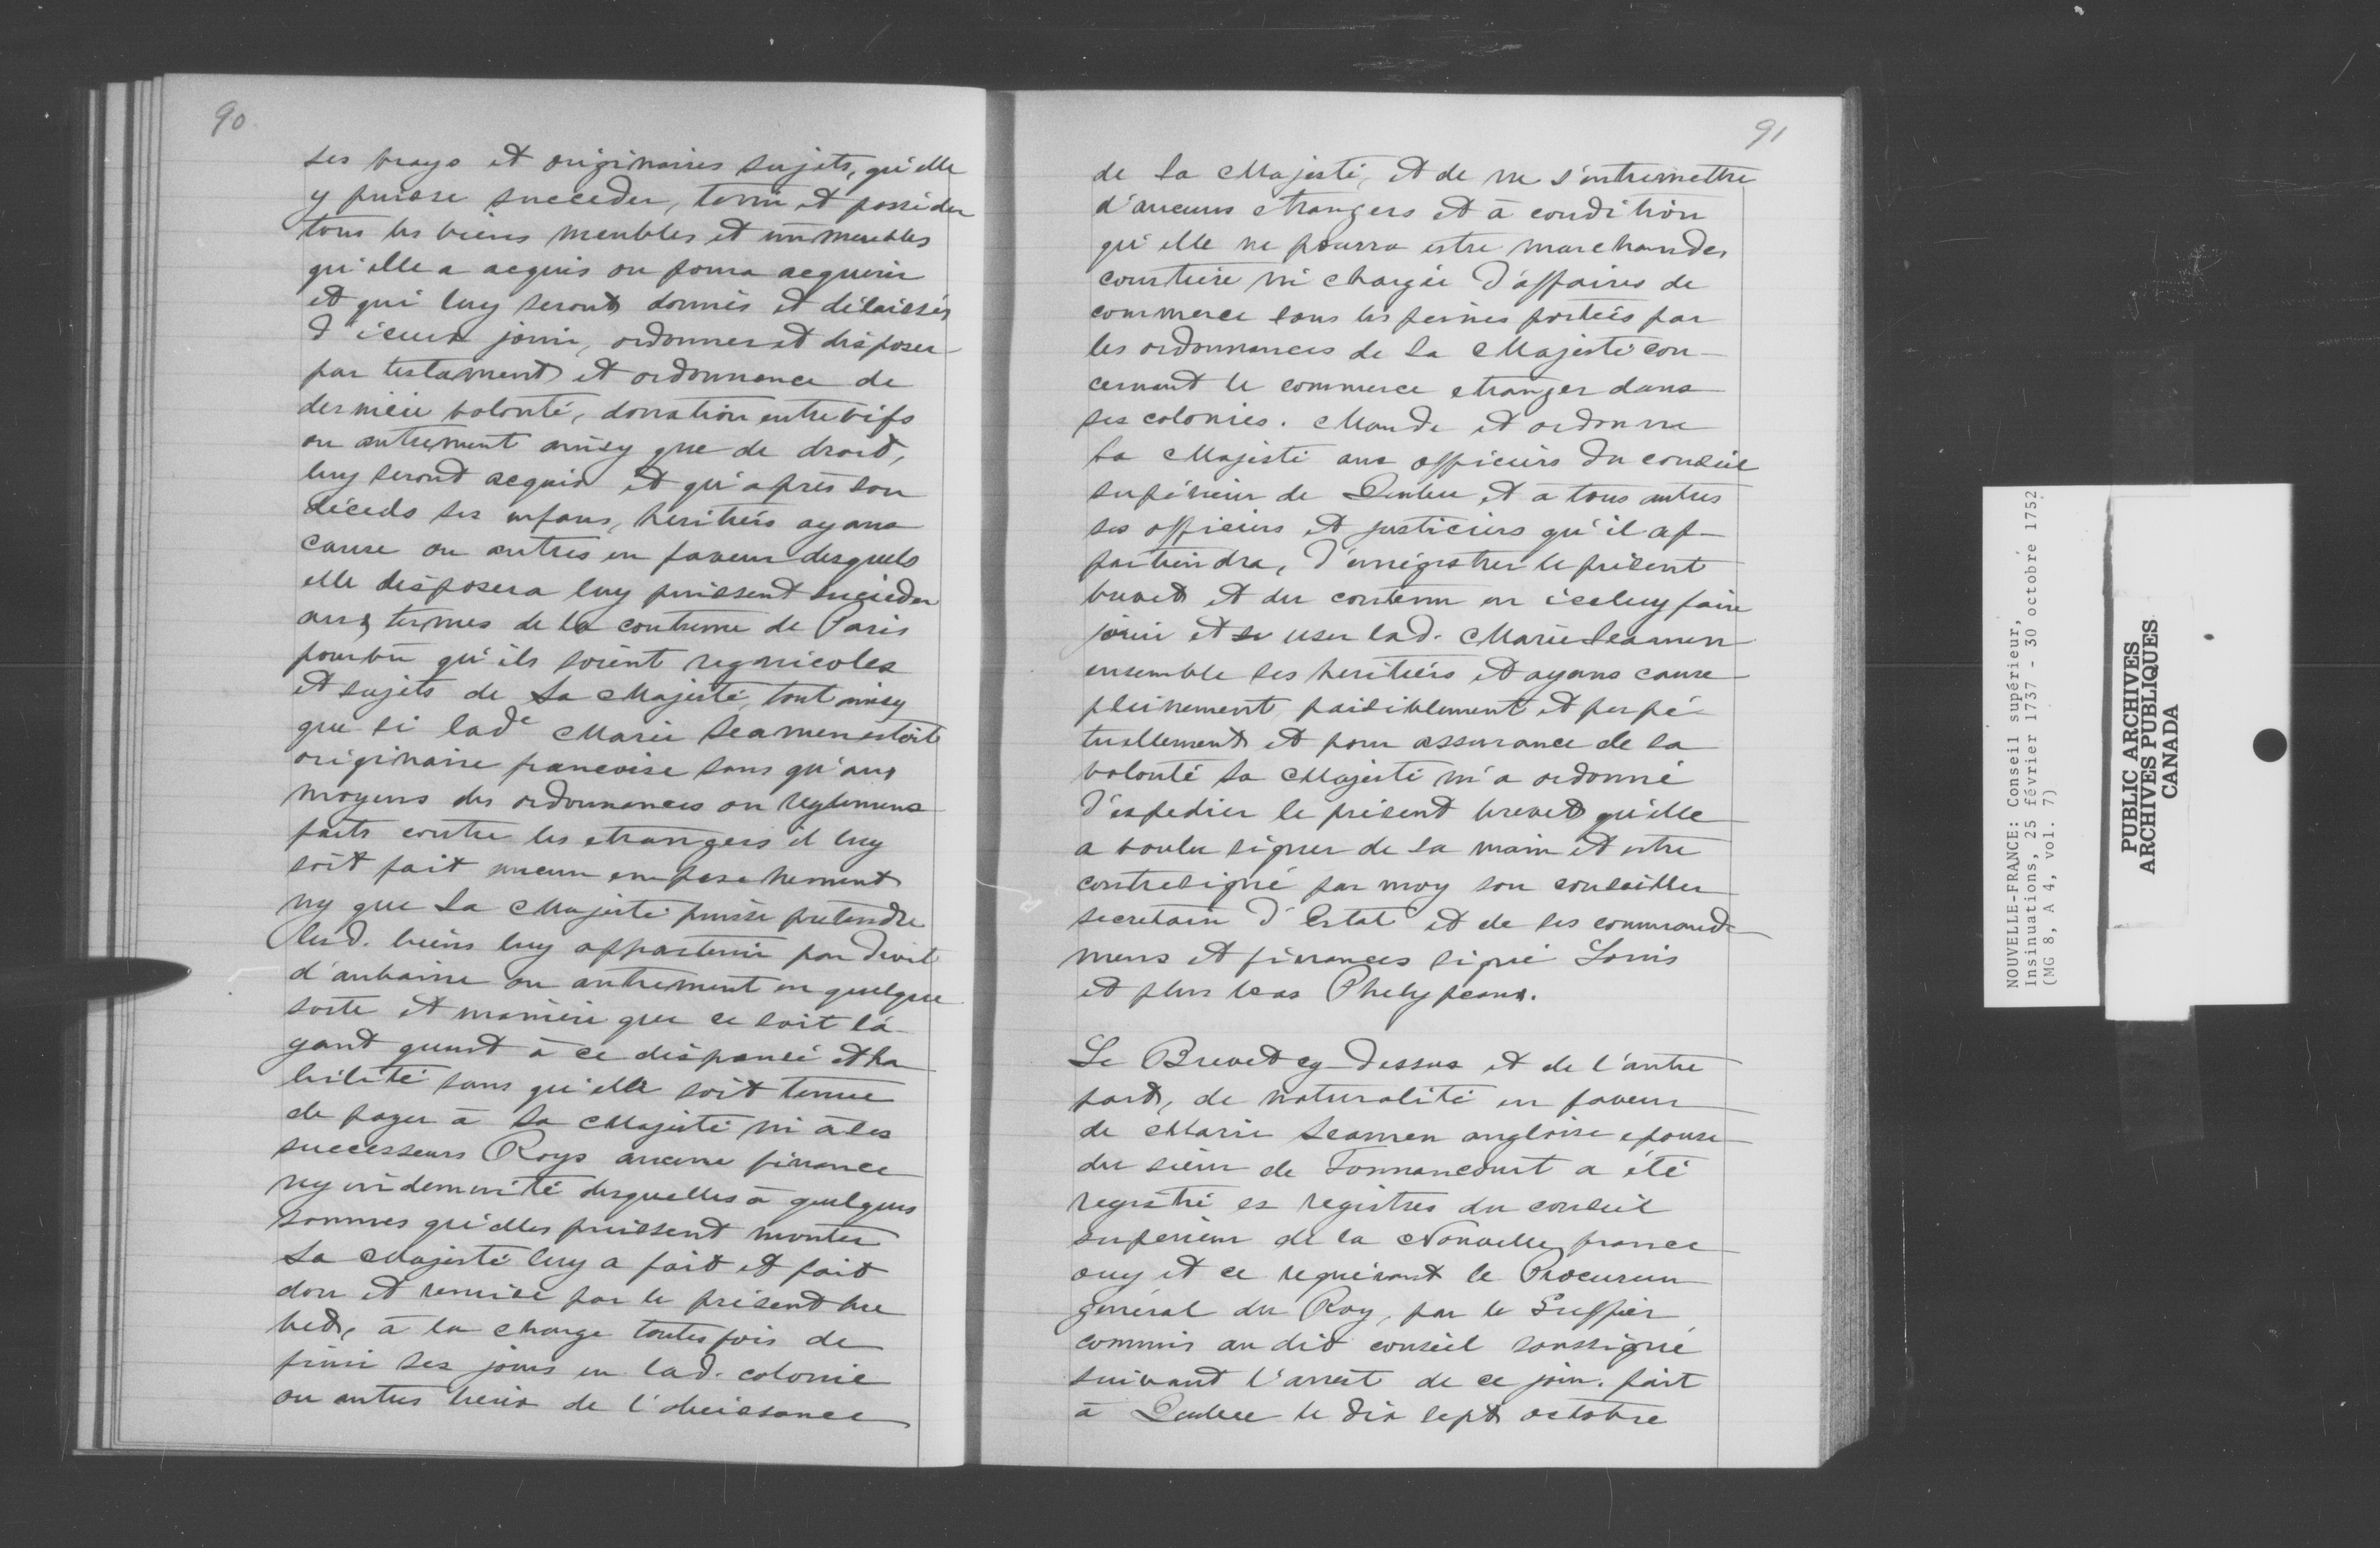 90
ses vrays et originaires sujets, qu'elle
y puisse succeder, tenir et posséder
tous les biens meubles et immeubles
qu'elle a acquis ou poura acquerir
et qui luy seront donnés et délaissés
d'iceux jouir, ordonner et disposer
par testament et ordonnance de
derniere volonté, donation entre vifs
ou autrement ainsy que de droit,
luy seront acquis et qu'après son
déceds ses enfans, heritiérs ayans
cause ou autres en faveur desquels
elle disposera luy puissent succéder
aux termes de la coutume de Paris
pourvu qu'ils soient regnicoles
et sujets de Sa Majesté, tout ainsy
que si lade Marie Seamen estoit
originaire francoise sans qu'aux
moyens des ordonnances ou reglemens
faits contre les etrangers il luy
soit fait aucun empeschement
ny que Sa Majesté puisse pretendre
lesd. biens luy appartenir par droit
d'aubaine ou autrement en quelque
sorte et manière que ce soit l'a-
yant quant à ce dispensé et ha
bilité sans qu'elle soit tenue
de payer à Sa Majesté ni à ses
successeurs Roys aucune finance
ny indemnité desquelles à quelques
sommes qu'elles puissent monter
Sa Majesté luy a fait et fait
don et remise par le présent bre
vet, à la charge toutes fois de
finir ses jours en lad. colonie
ou autres lieux de l'obeissance
91
de Sa Majesté, et de ne s'entremettre
d'aucuns etrangers et à condition
qu'elle ne pourra estre marchandes
courtiere ni chargée d'affaires de
commerce sous les peines portées par
les ordonnances de Sa Majesté con-
cernant le commerce etranger dans
ses colonies. Mande et ordonne
Sa Majesté aux officiers du conseil
supérieur de Quebec, et à tous autres
ses officiers et justiciers qu'il ap-
partiendra, d'enregistrer le présent
brevet et du contenu en iceluy faire
jouir et user lad. Marie Seamen
ensemble ses heritiers et ayans cause
pleinement paisiblement et perpé-
tuellement et pour assurance de sa
volonté Sa Majesté m'a ordonné
d'expedier le présent brevet qu'elle
a voulu signer de sa main et estre
contresigné par moy son conseiller
secretaire d'Estat et de ses commande
mens et finances signé Louis
et plus bas Phelypeaux.
Le Brevet cy-dessus et de l'autre
part, de naturalité en faveur
de Marie Seamen angloise epouse
du sieur de Tonnancourt a été
registré es registres du conseil
supérieur de la Nouvelle france
ouy et ce requérant le Procureur
général du Roy, par le Greffier
commis au dit conseil soussigné
suivant l'arrest de ce jour. fait
à Quebec le dix sept octobre
NOUVELLE-FRANCE: Conseil supérieur,
Insinuations, 25 février 1737 - 30 octobre 1752
(MG 8, A 4, vol. 7)
PUBLIC ARCHIVES
ARCHIVES PUBLIQUES
CANADA